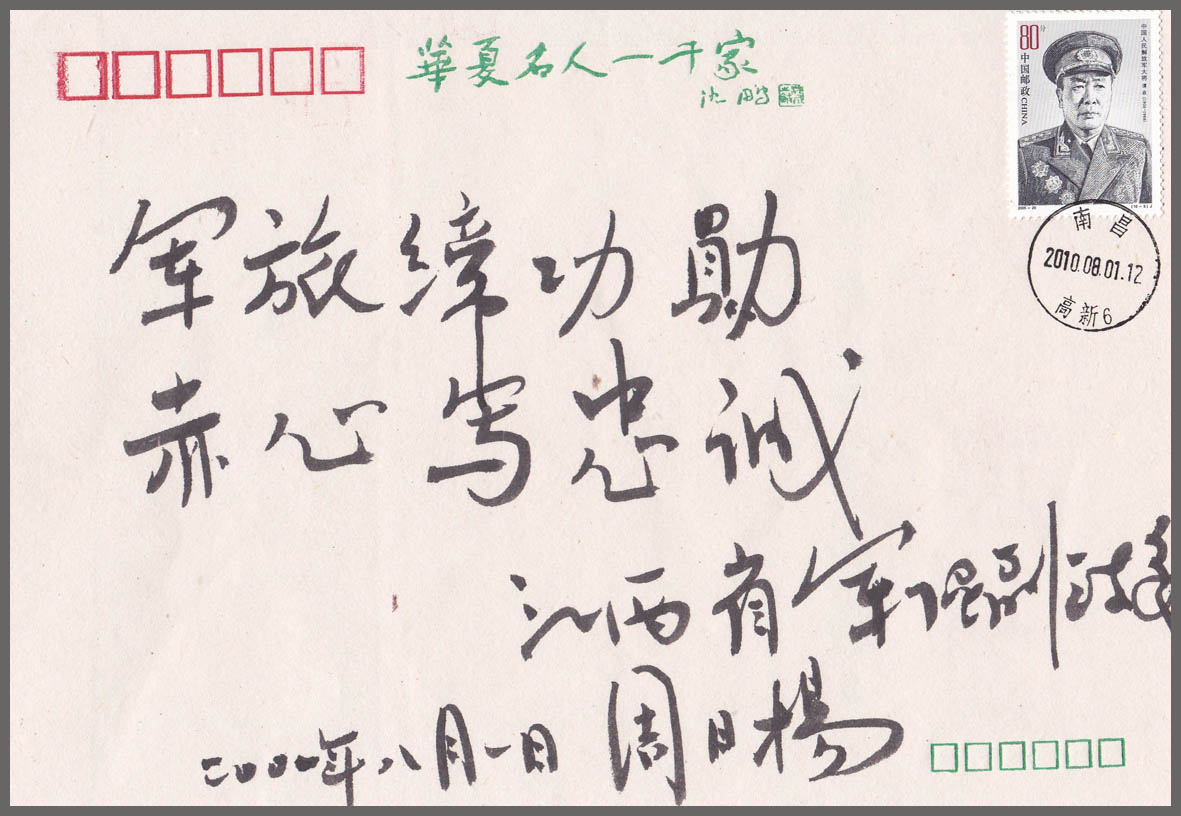 華夏名人一千家
沈鹏
80分
中国邮政 CHINA
中国人民解放军大将
南昌
2010.08.01.12
高新6
军旅缔功勋
赤心写忠诚
江西省军区副政委
周日楊
年八月一日